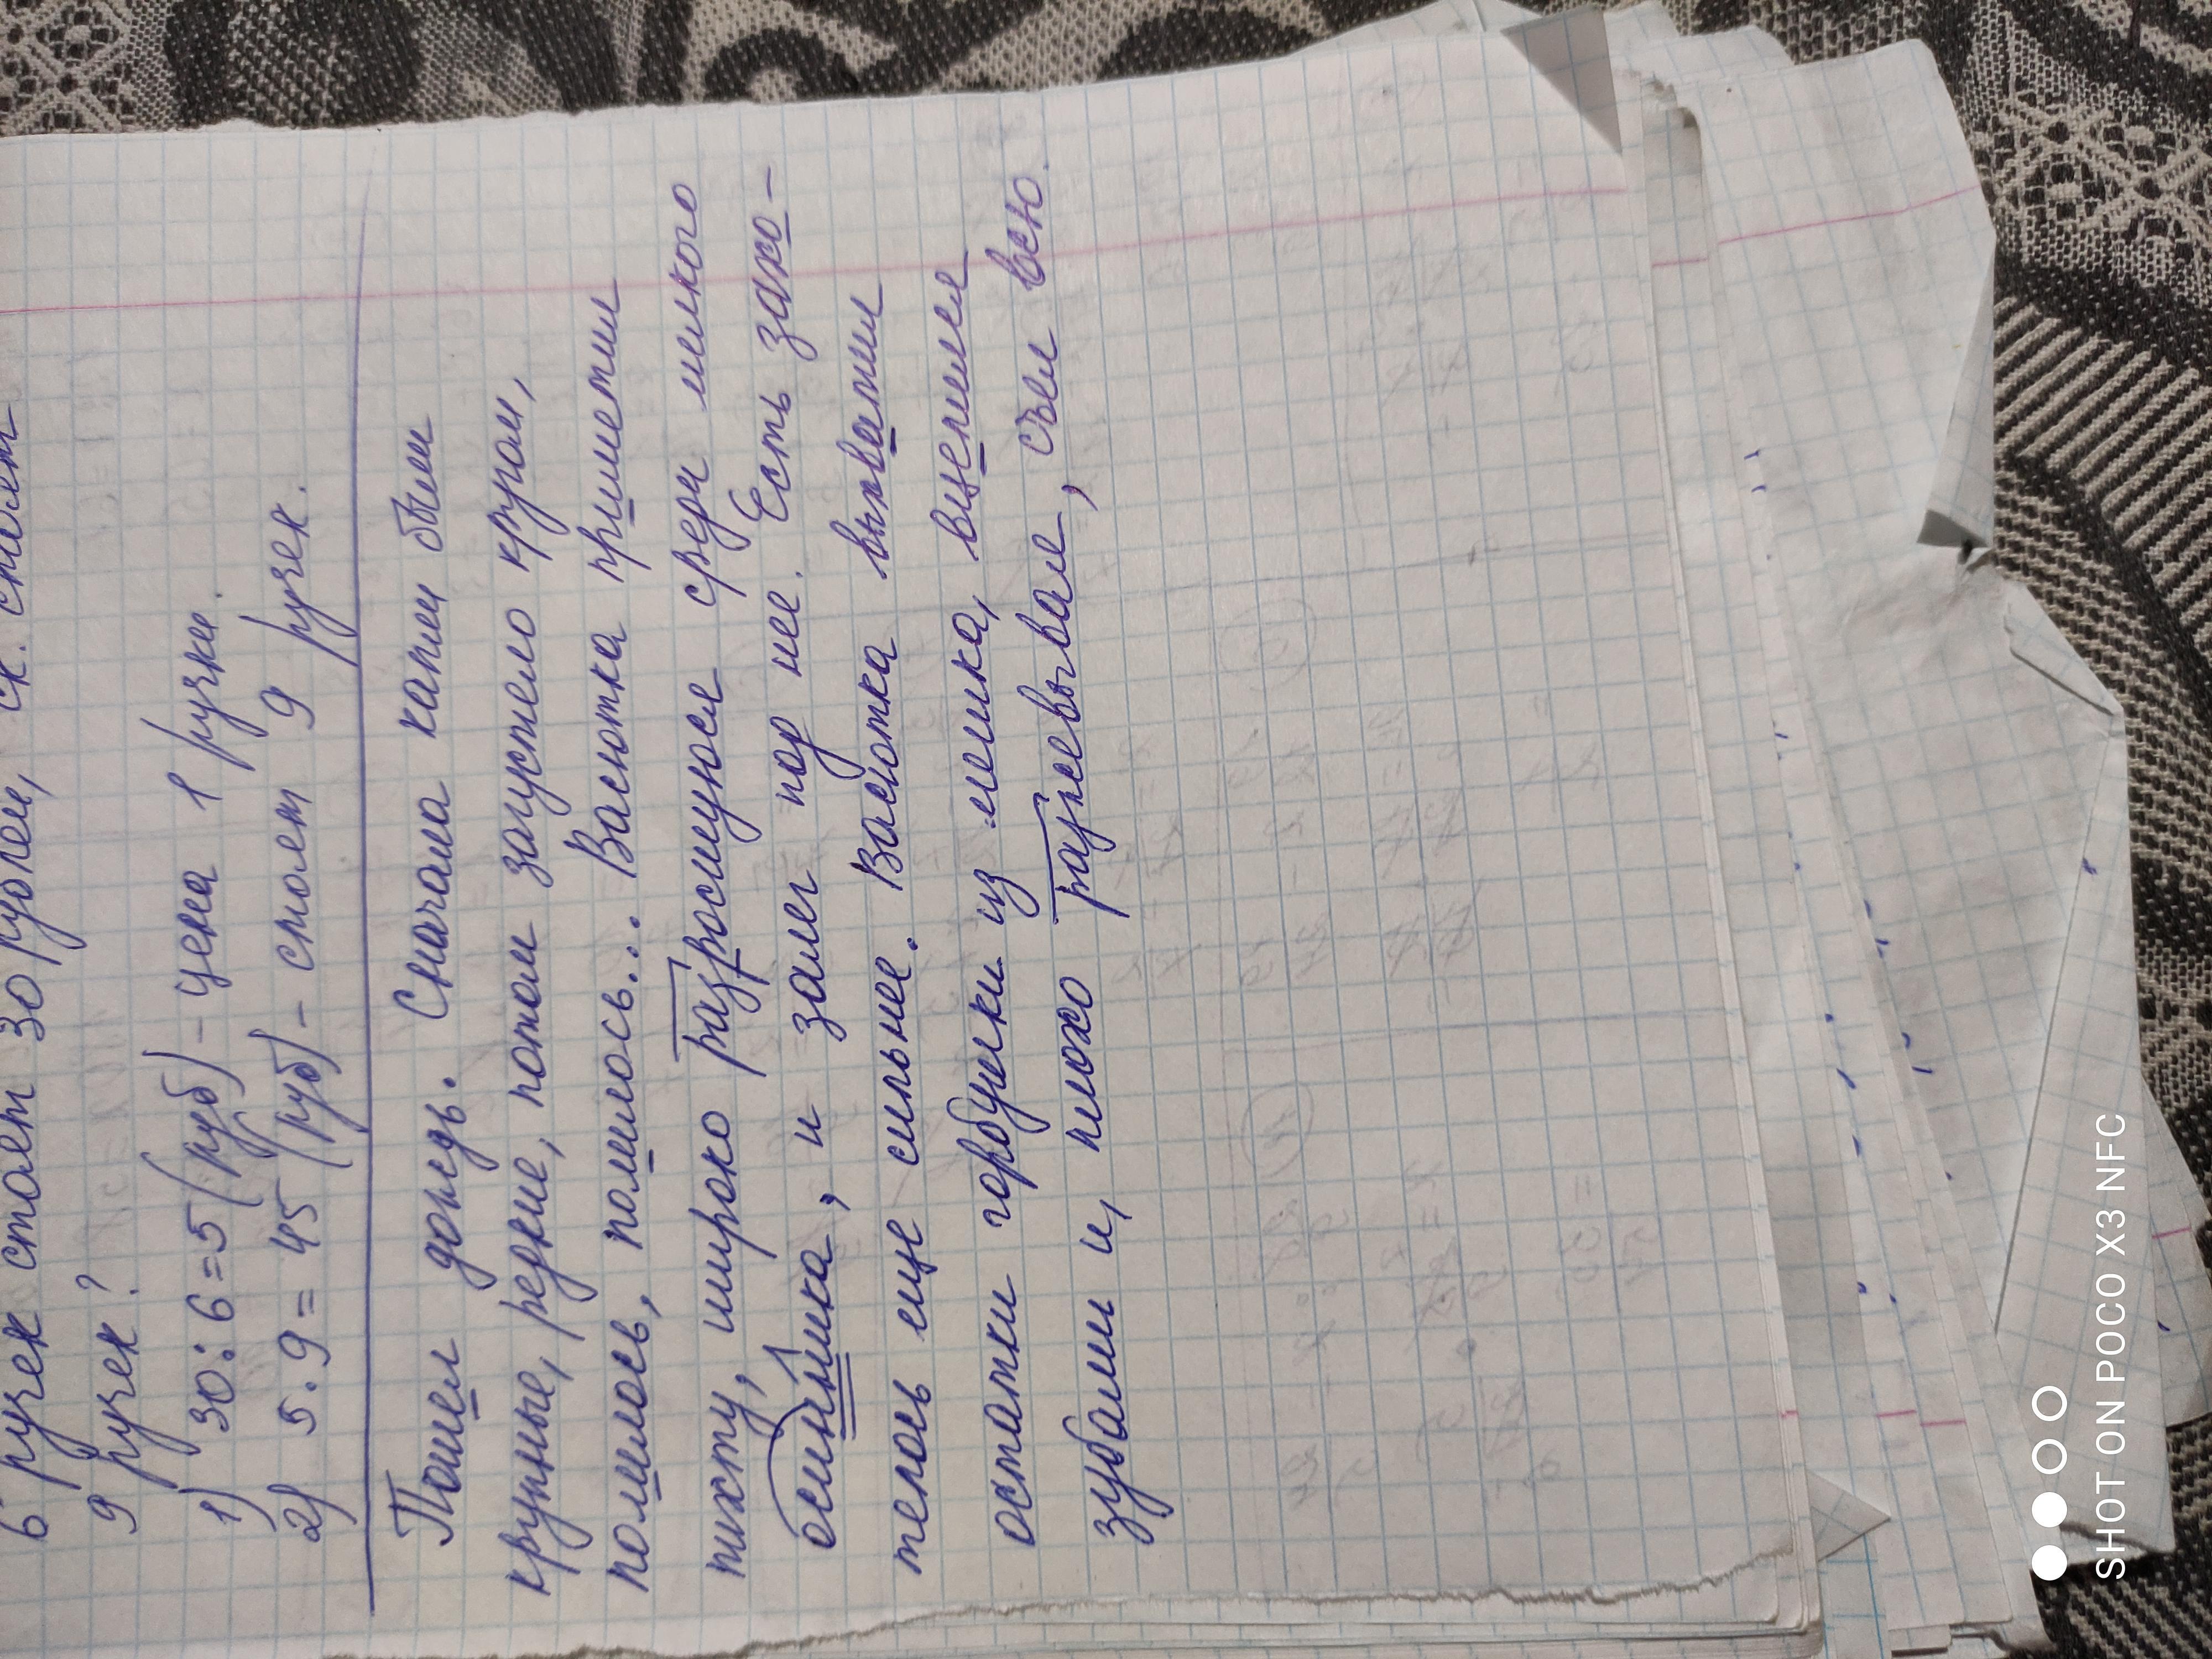 6 ручек стоят 30 рублей, ск. стоят
9 ручек?
1) 30:6=5 (руб) - цена 1 ручки.
2) 5·9=45 (руб) - стоят 9 ручек.
Пошел дождь. Сначала капли были
крупные, редкие, потом загустело кругом,
полилось, полилось... Васютка приметил
пихту, широко разросшуюся среди мелкого
осинника, и залег под нее. Есть захо-
телось еще сильнее. Васютка выхватил
остатки горбушки из мешка, вцепился
зубами и, плохо разжевывая, съел всю.
SHOT ON POCO X3 NFC